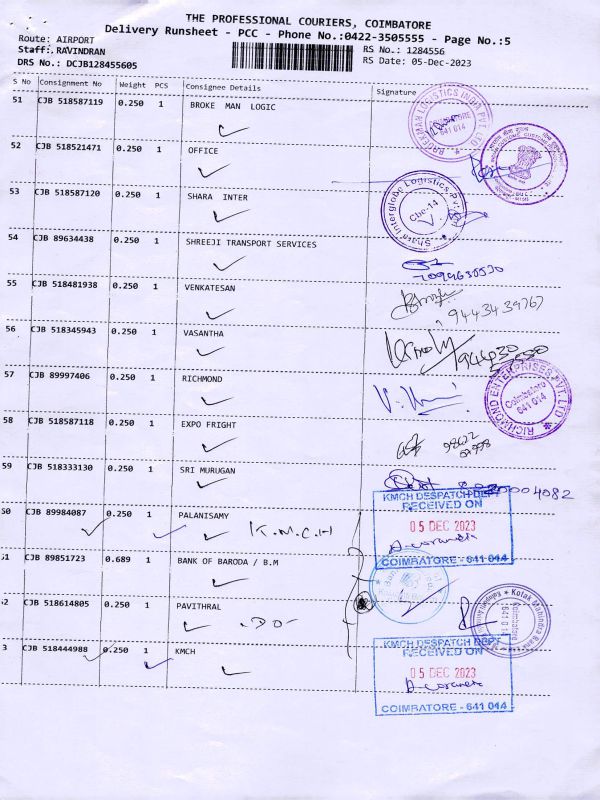 THE PROFESSIONAL COURIERS, COIMBATORE
Delivery Runsheet - PCC - Phone No.:0422-3505555 - Page No.:5
Route: AIRPORT
RS No.: 1284556
Staff:.RAVINDRAN
RS Date: 05-Dec-2023
DRS No.: DCJB128455605
S No Consignment No Weight PCS Consignee Details Signature
51 CJB 518587119 0.250 1 BROKE MAN LOGIC
641 014
52 CJB 518521471 0.250 1 OFFICE
53 CJB 518587120 0.250 1 SHARA INTER
Cbe-14
54 CJB 89634438 0.250 1 SHREEJI TRANSPORT SERVICES
55 CJB 518481938 0.250 1 VENKATESAN
9443439767
56 CJB 518345943 0.250 1 VASANTHA
57 CJB 89997406 0.250 1 RICHMOND
RICHMOND ENTERPRISES PVT. LTD
Coimbatore
641 014
58 CJB 518587118 0.250 1 EXPO FRIGHT
59 CJB 518333130 0.250 1 SRI MURUGAN
60 CJB 89984087 0.250 1 PALANISAMY K.M.C.H
KMCH DESPATCH DEPT
RECEIVED ON
05 DEC 2023
COIMBATORE - 641 014
61 CJB 89851723 0.689 1 BANK OF BARODA / B.M
62 CJB 518614805 0.250 1 PAVITHRAL -DO-
Kotak Mahindra Bank
Coimbatore
641 014
3 CJB 518444988 0.250 1 KMCH
KMCH DESPATCH DEPT
RECEIVED ON
05 DEC 2023
COIMBATORE - 641 014